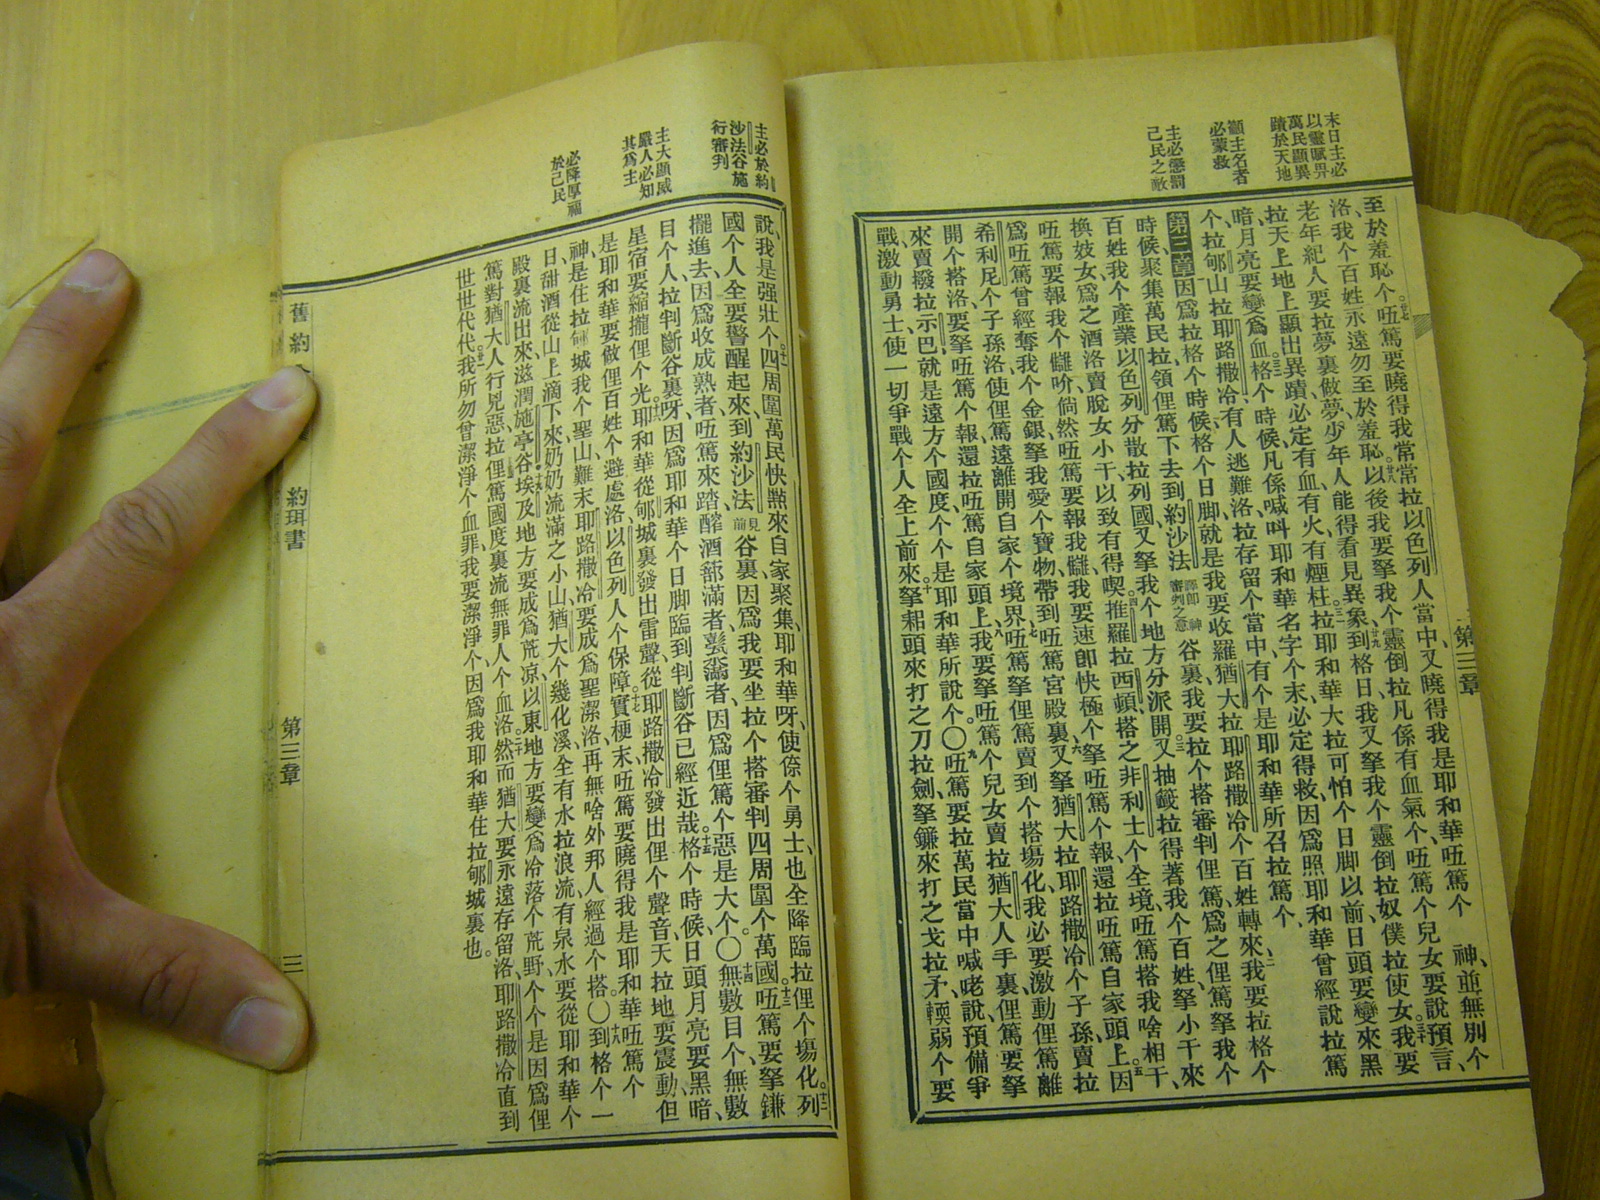 末日主必
以靈賦畀
萬民顯異
蹟於天地
籲主名者
必蒙救
主必懲罰
己民之敵
第三章
至於羞恥个吾篤要曉得我常常拉以色列人當中又曉得我是耶和華吾篤个 神並無別个
洛我个百姓永遠勿至於羞恥以後我要拏我个靈倒拉凡係有血氣个吾篤个兒女要說預言
老年紀人要拉夢裏做夢少年人能得看見異象到格日我又拏我个靈倒拉奴僕拉使女我要
拉天上地上顯出異蹟必定有血有火有煙柱拉耶和華大拉可怕个日脚以前日頭要變來黑
暗月亮要變爲血格个時候凡係喊呌耶和華名字个末必定得救因爲照耶和華曾經說拉篤
个拉郇山拉耶路撒冷有人逃難洛拉存留个當中有个是耶和華所召拉篤个
第三章因爲拉格个時候格个日脚就是我要收羅猶大拉耶路撒冷个百姓轉來我要拉格个
時候聚集萬民拉領俚篤下去到約沙法谷裏我要拉个搭審判俚篤爲之俚篤拏我个
百姓我个產業以色列分散拉列國又拏我个地方分派開又抽籤拉得著我个百姓拏小干來
換妓女爲之酒洛賣脫女小干以致有得喫推羅拉西頓搭之非利士个全境吾篤搭我啥相干
吾篤要報我个讎吤倘然吾篤要報我讎我要速卽快極个拏吾篤个報還拉吾篤自家頭上因
爲吾篤曾經奪我个金銀拏我愛个寶物帶到吾篤宮殿裏又拏猶大拉耶路撒冷个子孫賣拉
希利尼个子孫洛使俚篤遠離開自家个境界吾篤拏俚篤賣到个搭塲化我必要激動俚篤離
開个搭洛要拏吾篤个報還拉吾篤自家頭上我要拏吾篤个兒女賣拉猶大人手裏俚篤要拏
來賣撥拉示巴就是遠方个國度个个是耶和華所說个〇吾篤要拉萬民當中喊咾說預備爭
戰激動勇士使一切爭戰个人全上前來拏耜頭來打之刀拉劍拏鐮來打之戈拉矛輭弱个要
主必於約
沙法谷施
行審判
主大顯威
嚴人必知
其爲主
必降厚福
於己民
說我是强壯个四周圍萬民快㸃來自家聚集耶和華呀使倷个勇士也全降臨拉俚个塲化列
國个人全要警醒起來到約沙法見前谷裏因爲我要坐拉个搭審判四周圍个萬國吾篤要拏鐮
擺進去因爲收成熟者吾篤來踏醡酒蔀滿者㽀滿者因爲俚篤个惡是大个〇無數目个無數
目个人拉判斷谷裏呀因爲耶和華个日脚臨到判斷谷已經近哉格个時候日頭月亮要黑暗
星宿要縮攏俚个光耶和華從郇城裏發出雷聲從耶路撒冷發出俚个聲音天拉地要震動但
是耶和華要做俚百姓个避處洛以色列人个保障實梗末吾篤要曉得我是耶和華吾篤个
神是住拉郇城我个聖山難末耶路撒冷要成爲聖潔洛再無啥外邦人經過个搭〇到格个一
日甜酒從山上滴下來奶奶流滿之小山猶大个幾化溪全有水拉浪流有泉水要從耶和華个
殿裏流出來滋潤施亭谷埃及地方要成爲荒凉以東地方要變爲冷落个荒野个个是因爲俚
篤對猶大人行兇惡拉俚篤國度裏流無罪人个血洛然而猶大要永遠存留洛耶路撒冷直到
世世代代我所勿曾潔淨个血罪我要潔淨个因爲我耶和華住拉郇城裏也
舊約
約珥書
第三章
三